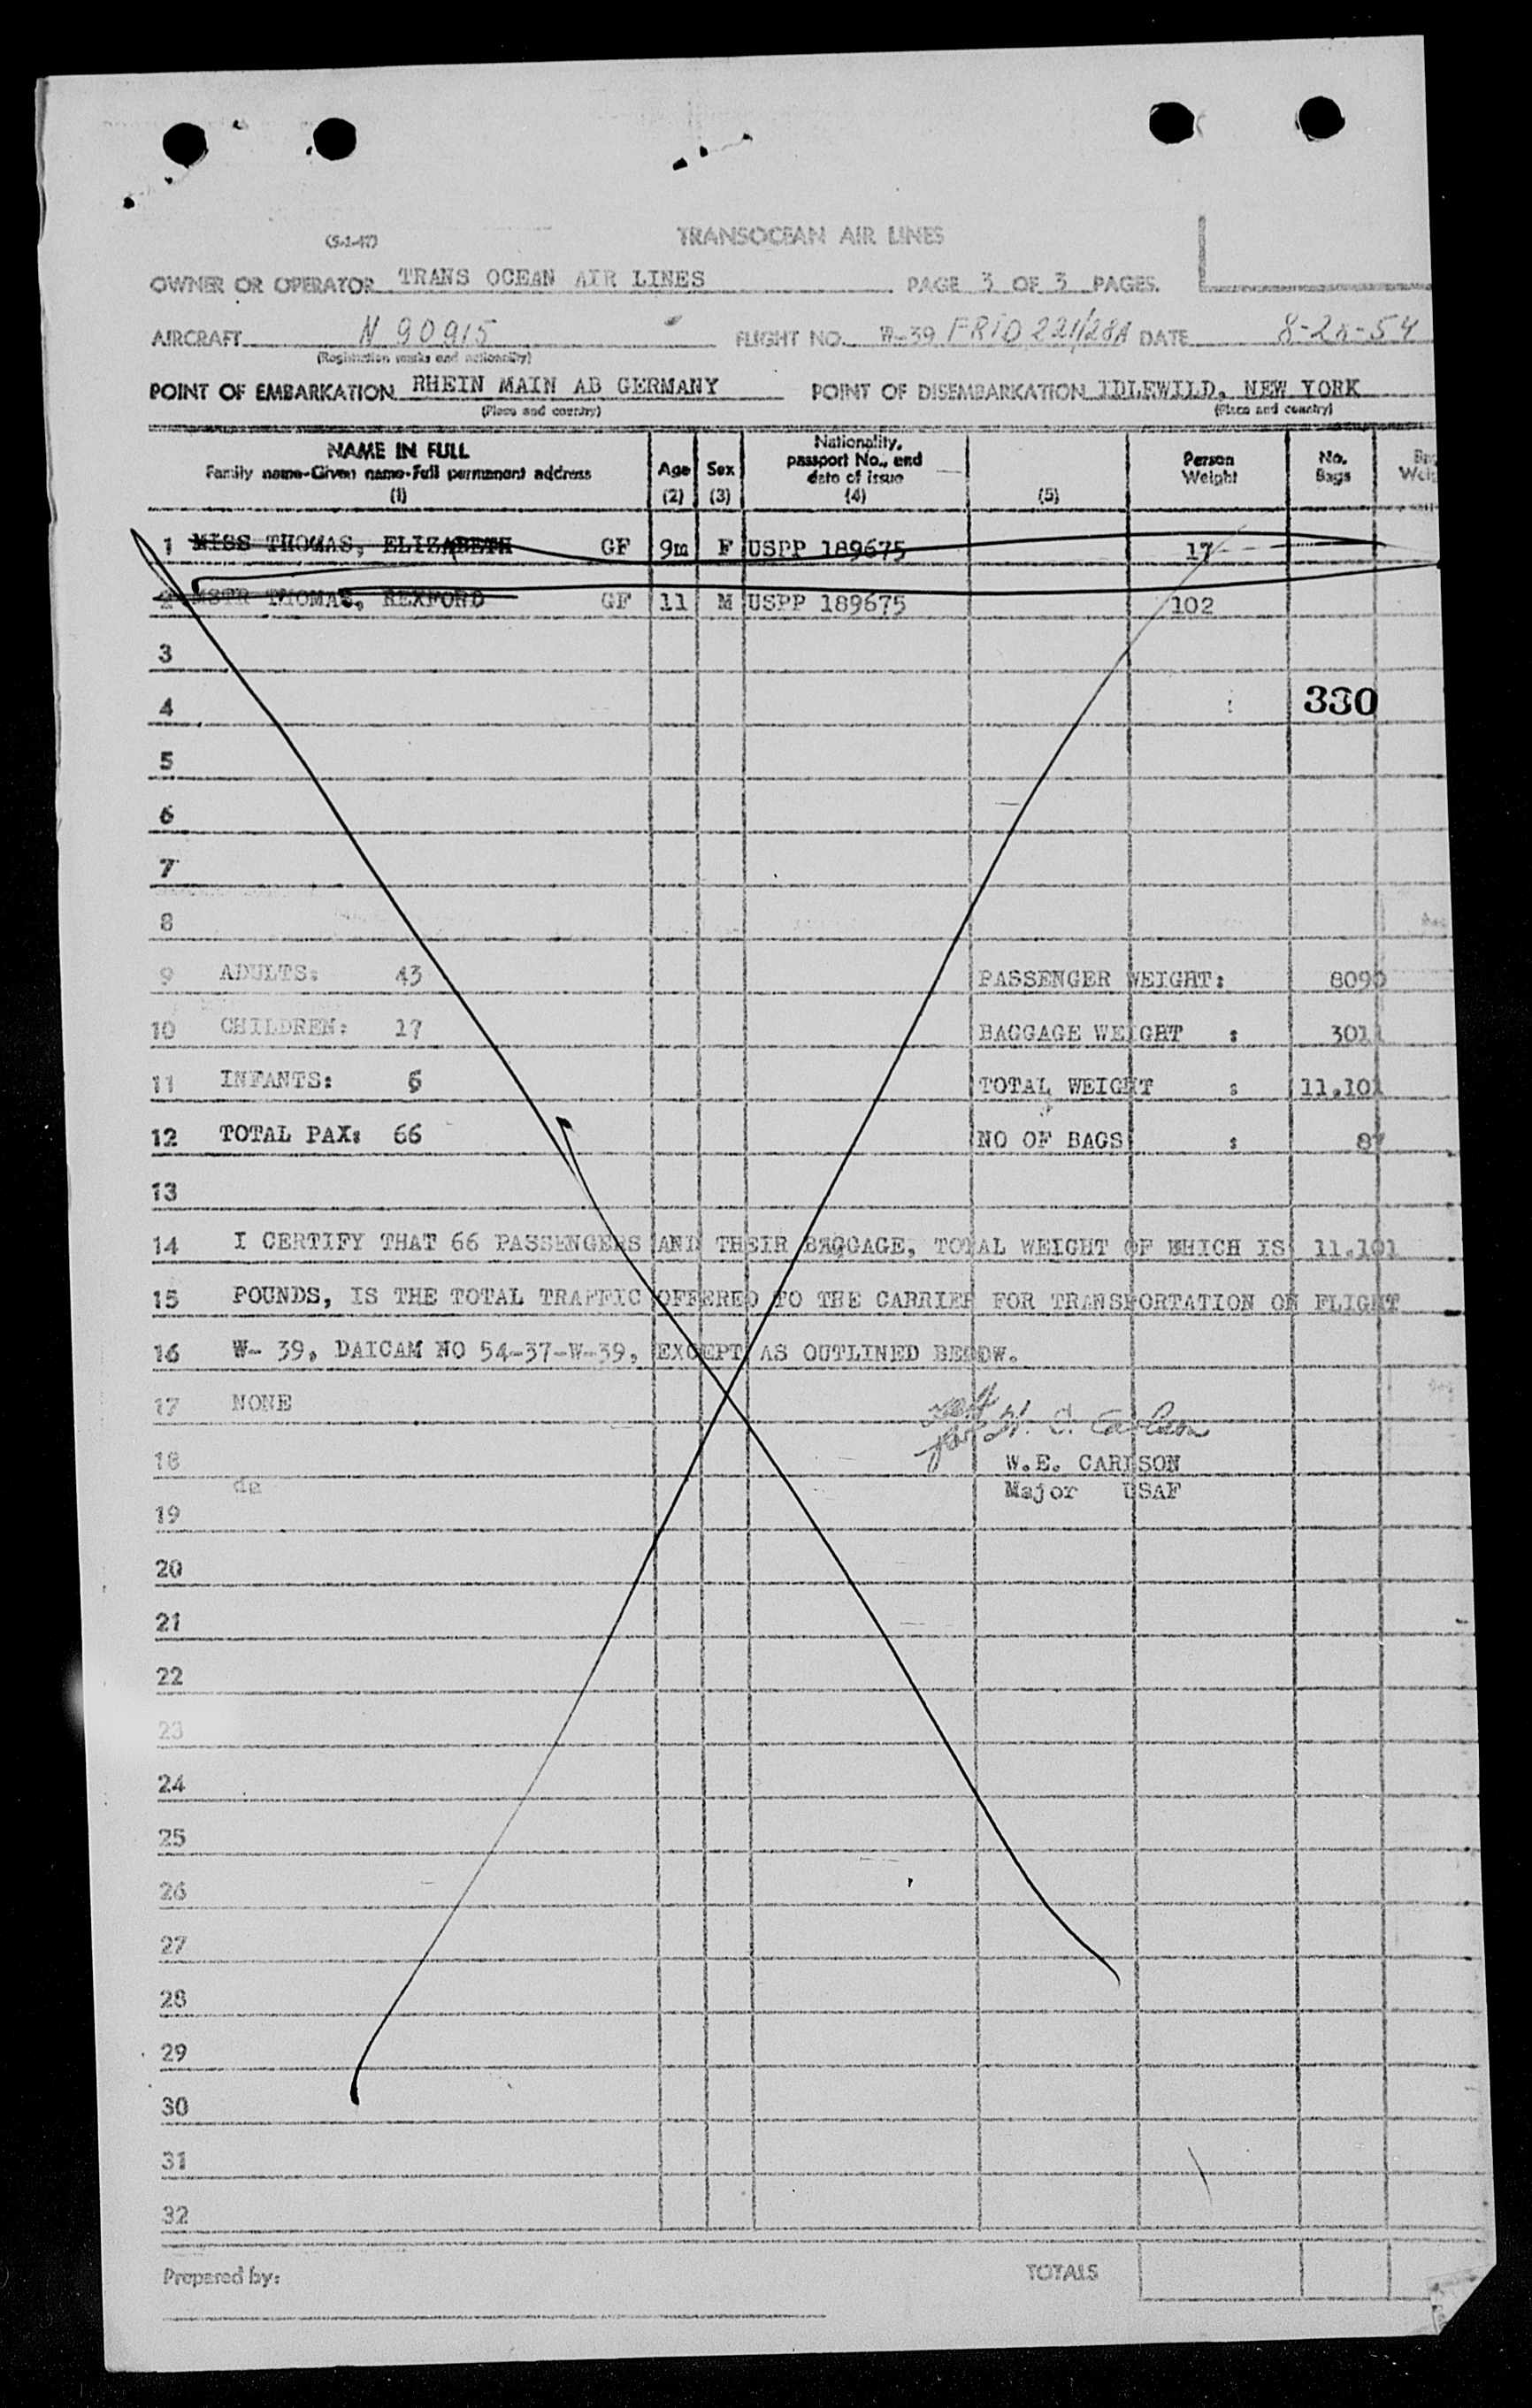 (5-1-47)
TRANSOCEAN AIR LINES
OWNER OR OPERATOR TRANS OCEAN AIR LINES PAGE 3 OF 3 PAGES.
AIRCRAFT N 90915 FLIGHT NO. W-39 FRTO 221/28A DATE 8-28-54
(Registration marks and nationality)
POINT OF EMBARKATION RHEIN MAIN AB GERMANY POINT OF DISEMBARKATION IDLEWILD, NEW YORK
(Place and country) (Place and country)
NAME IN FULL
Family name-Given name-Full permanent address
(1)
Age
(2)
Sex
(3)
Nationality,
passport No., and
date of issue
(4)
(5)
Person
Weight
No.
Bags
1 MISS THOMAS, ELIZABETH GF 9m F USPP 189675 17
2 MSTR THOMAS, REXFORD GF 11 M USPP 189675 102
3
4 330
5
6
7
8
9 ADULTS: 43 PASSENGER WEIGHT: 8090
10 CHILDREN: 17 BAGGAGE WEIGHT : 3011
11 INFANTS: 6 TOTAL WEIGHT : 11.101
12 TOTAL PAX: 66 NO OF BAGS : 87
13
14 I CERTIFY THAT 66 PASSENGERS AND THEIR BAGGAGE, TOTAL WEIGHT OF WHICH IS 11.101
15 POUNDS, IS THE TOTAL TRAFFIC OFFERED TO THE CARRIER FOR TRANSPORTATION ON FLIGHT
16 W- 39, DAICAM NO 54-37-W-39, EXCEPT AS OUTLINED BELOW.
17 NONE
for W. E. Carlson
18 W.E. CARLSON
da Major USAF
19
20
21
22
23
24
25
26
27
28
29
30
31
32
Prepared by: TOTALS